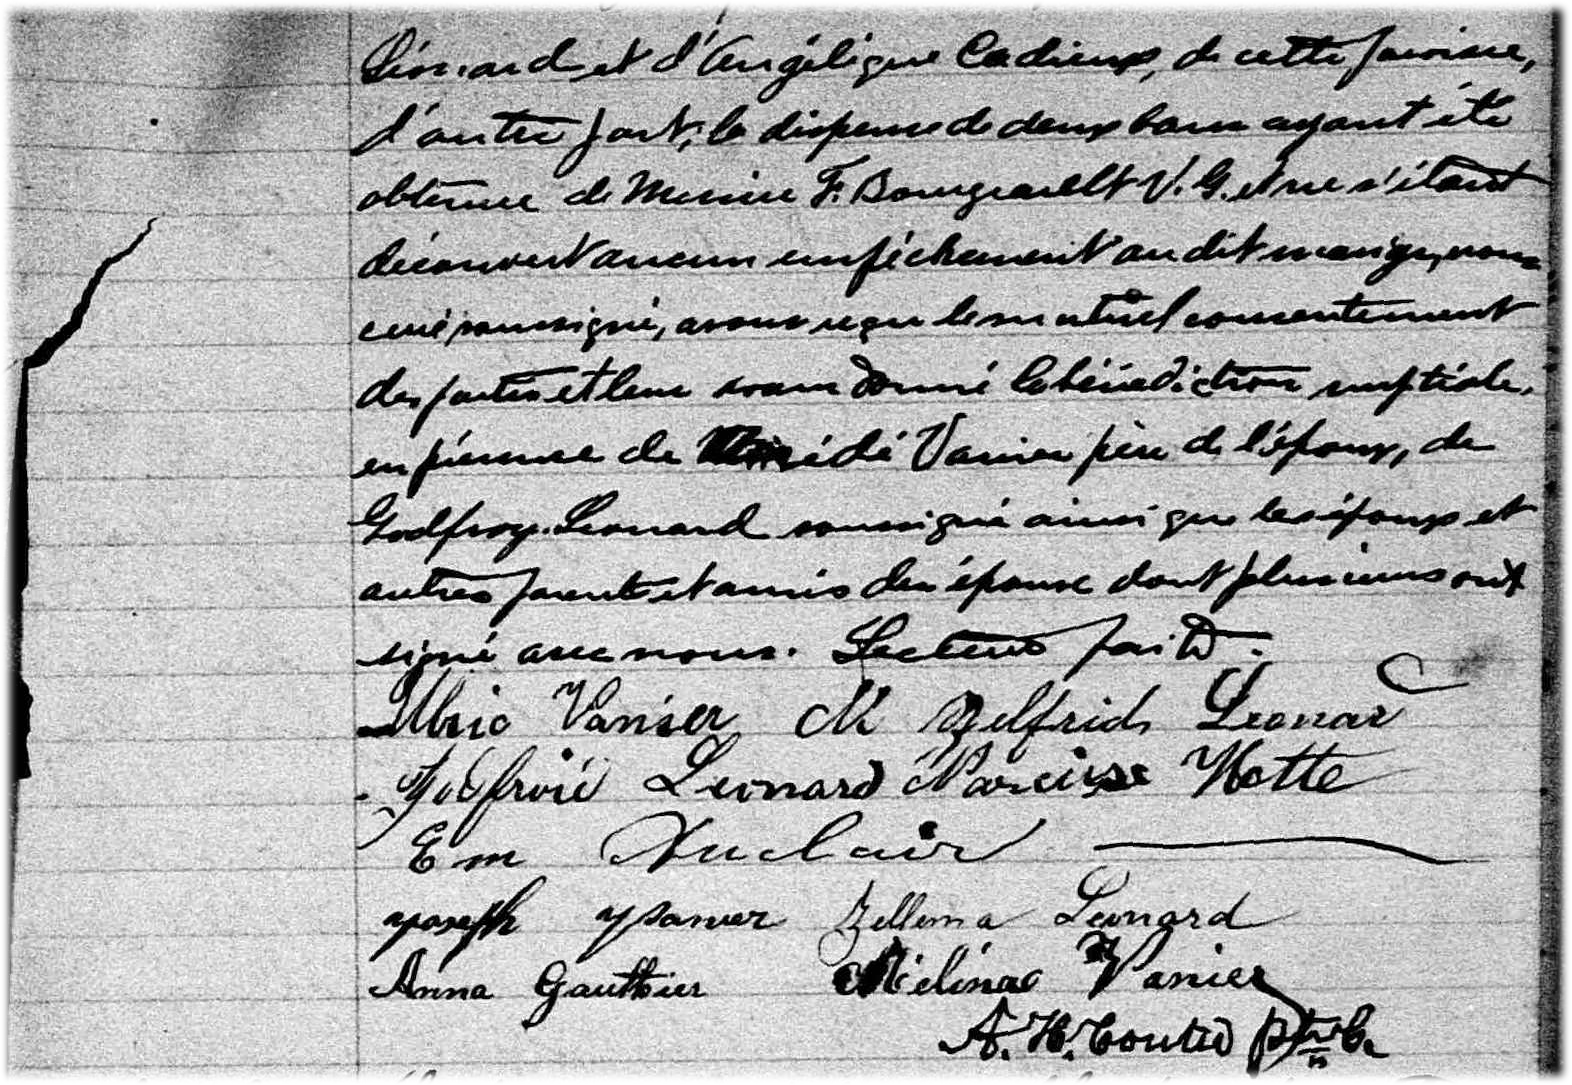 Léonard et d'Angélique Cadieux, de cette paroisse,
d'autre part; la dispense de deux bans ayant été
obtenue de Messire F. Bourgeault V. G. et ne s'étant
découvert aucun empêchement au dit mariage, nous
curé soussigné, avons reçu le mutuel consentement
des parties et leur avons donné la bénédiction nuptiale,
en présence de Vanier père de l'époux, de
Godfroy Leonard soussigné ainsi que les époux et
autres parents et amis des épouse dont plusieurs ont
signé avec nous. Lecture faite.
Ulric Vanier M Zelfrid Leonar
Godfroié Leonard Narcisse Hotte
Em Auclair
Joseph Vanier Zellema Leonard
Anna Gauthier Mélina Vanier
A. H. Coutu ptre